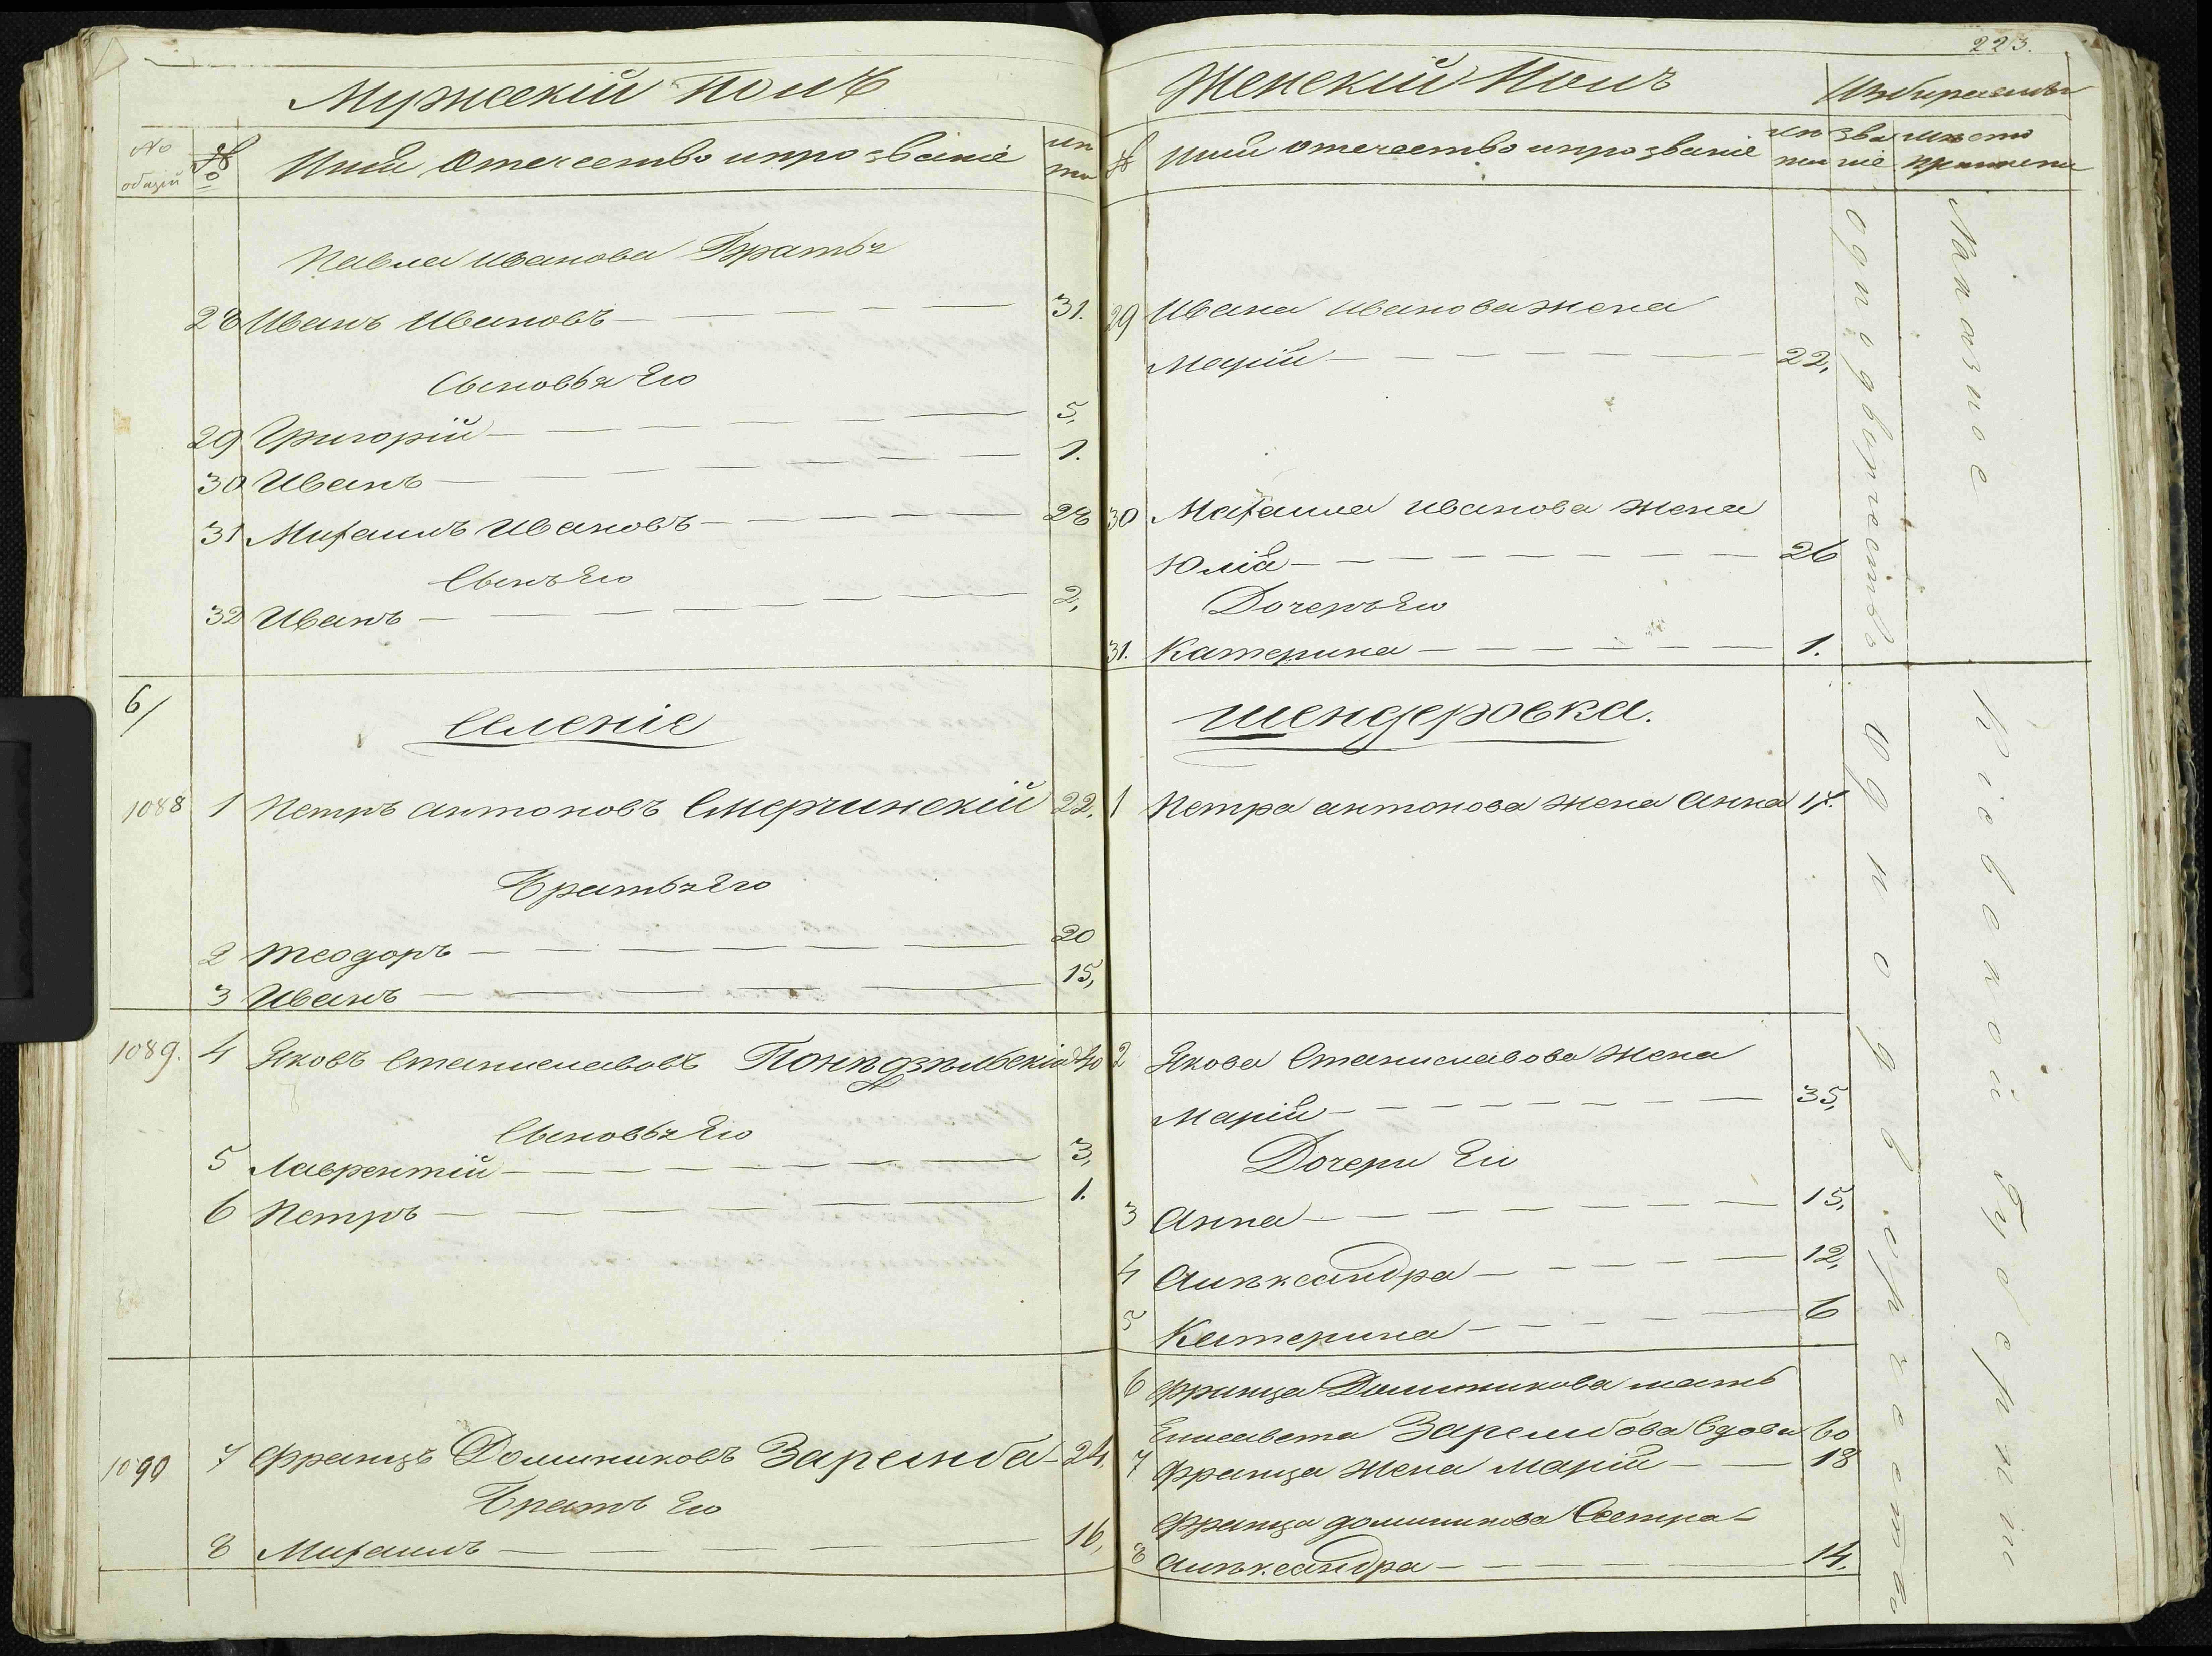 223.
Мужескій Полъ
No общій
№
Имя Отечество и прозваніе
лѣта
Павла Иванова Братья
28 Иванъ Ивановъ 31.
Сыновья Его
29 Григорій 5,
30 Иванъ 1.
31 Михаилъ Ивановъ 28
Сынъ Его
32 Иванъ 2,
6/
Селеніе
1088 1 Петръ Антоновъ Смерчинскій 22,
Братья Его
2 Теодоръ 20
3 Иванъ 15,
1089. 4 Яковъ Станиславовъ Понѣдзѣльскій 40
Сыновья Его
5 Лаврентій 3,
6 Петръ 1.
1090 7 Францъ Доминиковъ Заремба 24,
Братъ Его
8 Михаилъ 16,
Женскій Полъ
Избираемы
№
Имя Отечество и прозваніе
лѣта
званіе
мѣсто
29 Ивана Иванова жена
Марія 22,
30 Михаила Иванова жена
Юлія 26
Дочерь Его
31. Катерина 1.
Шендеровка.
1 Петра Антонова жена Анна 17.
2 Якова Станиславова жена
Марія 35,
Дочери Еи
3 Анна 15,
4 Алѣксандра 12,
5 Катерина 6
6 Франца Доминикова мать
Елисавета Зарембова Вдова 60
7 Франца жена Марія 18
Франца Доминикова Сестра
8 Алѣксандра 14.
Однодворчество
Одно дворчество
Кіевской Губерніи